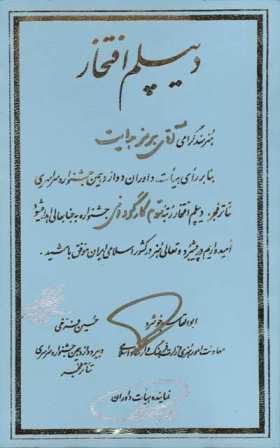 دیپلم افتخار
هنرمند گرامی آقای هرمز هدایت
بنا بر رأی هیأت داوران دوازدهمین جشنواره سراسری
تئاتر فجر، دیپلم افتخار رتبه دوم کارگردانی جشنواره به جنابعالی اهدا میشود
امیدواریم در پیشبرد و تعالی هنر در کشور اسلامی ایران موفق باشید.
ابوالقاسم خوشرو
معاونت امور هنری وزارت فرهنگ و ارشاد اسلامی
حسین
دبیر دوازدهمین جشنواره سراسری
تئاتر فجر
نماینده هیأت داوران